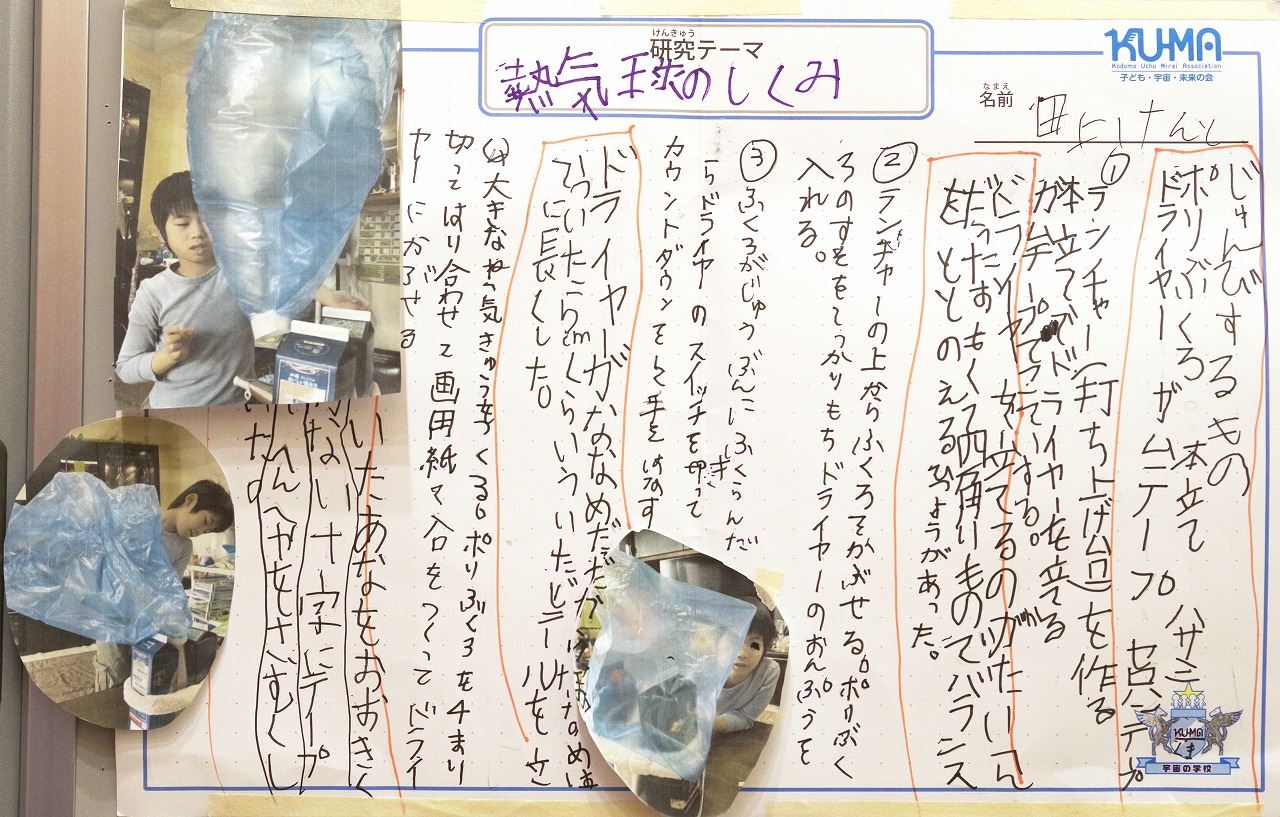 けんきゅう
研究テーマ
熱気球のしくみ
KU-MA
Kodomo Uchu Mirai Association
子ども・宇宙・未来の会
なまえ
名前
けんと
じゅんびするもの
ポリぶくろ 本立て ハサミ
ドライヤー ガムテープ セロハンテープ
①
ランチャー(打ち上げ台)を作る
本立てでドライヤーを立てる
ガムテープで
ドライヤーを立てるのが
四角いものでバランス
をととのえるひつようがあった。
②ランチャーの上からふくろをかぶせる。ポリぶく
ろのすそをしっかりもちドライヤーのおんぷうを
入れる。
③ふくろがじゅうぶんにふくらんだ
らドライヤーのスイッチを切って
カウントダウンをして手をはなす
ドライヤーがななめだだが
ついたら
に長くした。
④大きなねつ気きゅうを作る。ポリぶくろを4まい
切ってはり合わせて画用紙で入口をつくってドライ
ヤーにかぶせる
いたあなをおおきく
ない十字にテープ
KU-MA
宇宙の学校